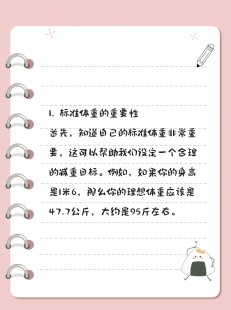 1. 标准体重的重要性
首先，知道自己的标准体重非常重
要，这可以帮助我们设定一个合理
的减重目标。例如，如果你的身高
是1米6，那么你的理想体重应该是
47.7公斤，大约是95斤左右。